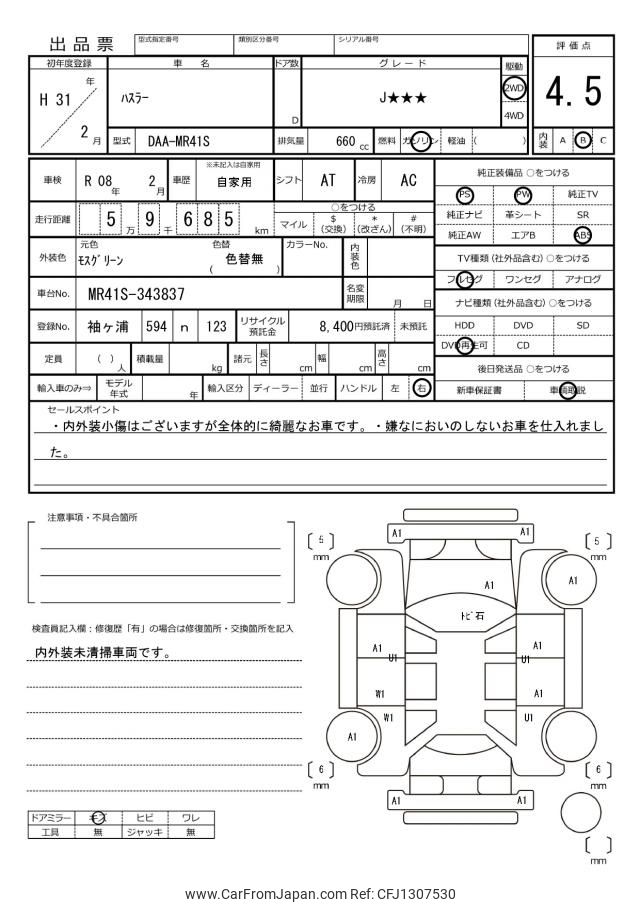 出品票
型式指定番号 類別区分番号 シリアル番号
評価点
4.5
内装 A B C
初年度登録 車名 ドア数 グレード 駆動
H 31 年 2 月
ハスラー
D
J★★★
2WD
4WD
型式 DAA-MR41S 排気量 660 cc 燃料 ガソリン 軽油 ( )
車検 R 08 年 2 月 車歴 ※未記入は自家用 自家用 シフト AT 冷房 AC
走行距離 5 万 9 千 6 8 5 km
○をつける
マイル $(交換) *(改ざん) #(不明)
外装色 元色 モスグリーン 色替 ( 色替無 ) カラーNo. 内装色
車台No. MR41S-343837 名変期限 月 日
登録No. 袖ヶ浦 594 n 123 リサイクル預託金 8,400円預託済 未預託
定員 ( ) 人 積載量 kg 諸元 長さ cm 幅 cm 高さ cm
輸入車のみ⇒ モデル年式 年 輸入区分 ディーラー 並行 ハンドル 左 右
純正装備品 ○をつける
PS PW 純正TV
純正ナビ 革シート SR
純正AW エアB ABS
TV種類(社外品含む) ○をつける
フルセグ ワンセグ アナログ
ナビ種類(社外品含む) ○をつける
HDD DVD SD
DVD再生可 CD
後日発送品 ○をつける
新車保証書 車輌取説
セールスポイント
・内外装小傷はございますが全体的に綺麗なお車です。・嫌なにおいのしないお車を仕入れまし
た。
注意事項・不具合箇所
検査員記入欄：修復歴「有」の場合は修復箇所・交換箇所を記入
内外装未清掃車両です。
ドアミラー キズ ヒビ ワレ
工具 無 ジャッキ 無
A1 A1
5 mm
5 mm
A1
A1
トビ石
A1 U1
A1 U1
W1
A1
W1
U1
A1
6 mm
6 mm
A1 A1
mm
www.CarFromJapan.com Ref: CFJ1307530